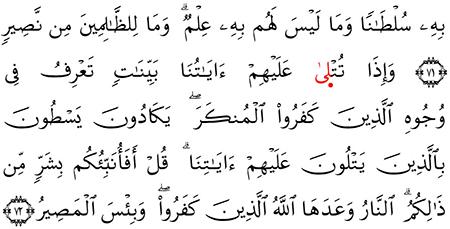 بِهِۦ سُلْطَٰنًا وَمَا لَيْسَ لَهُم بِهِۦ عِلْمٌ ۗ وَمَا لِلظَّٰلِمِينَ مِن نَّصِيرٍ
﴿٧١﴾ وَإِذَا تُتْلَىٰ عَلَيْهِمْ ءَايَٰتُنَا بَيِّنَٰتٍ تَعْرِفُ فِى
وُجُوهِ ٱلَّذِينَ كَفَرُوا۟ ٱلْمُنكَرَ ۖ يَكَادُونَ يَسْطُونَ
بِٱلَّذِينَ يَتْلُونَ عَلَيْهِمْ ءَايَٰتِنَا ۗ قُلْ أَفَأُنَبِّئُكُم بِشَرٍّ مِّن
ذَٰلِكُمُ ۗ ٱلنَّارُ وَعَدَهَا ٱللَّهُ ٱلَّذِينَ كَفَرُوا۟ ۖ وَبِئْسَ ٱلْمَصِيرُ ﴿٧٢﴾